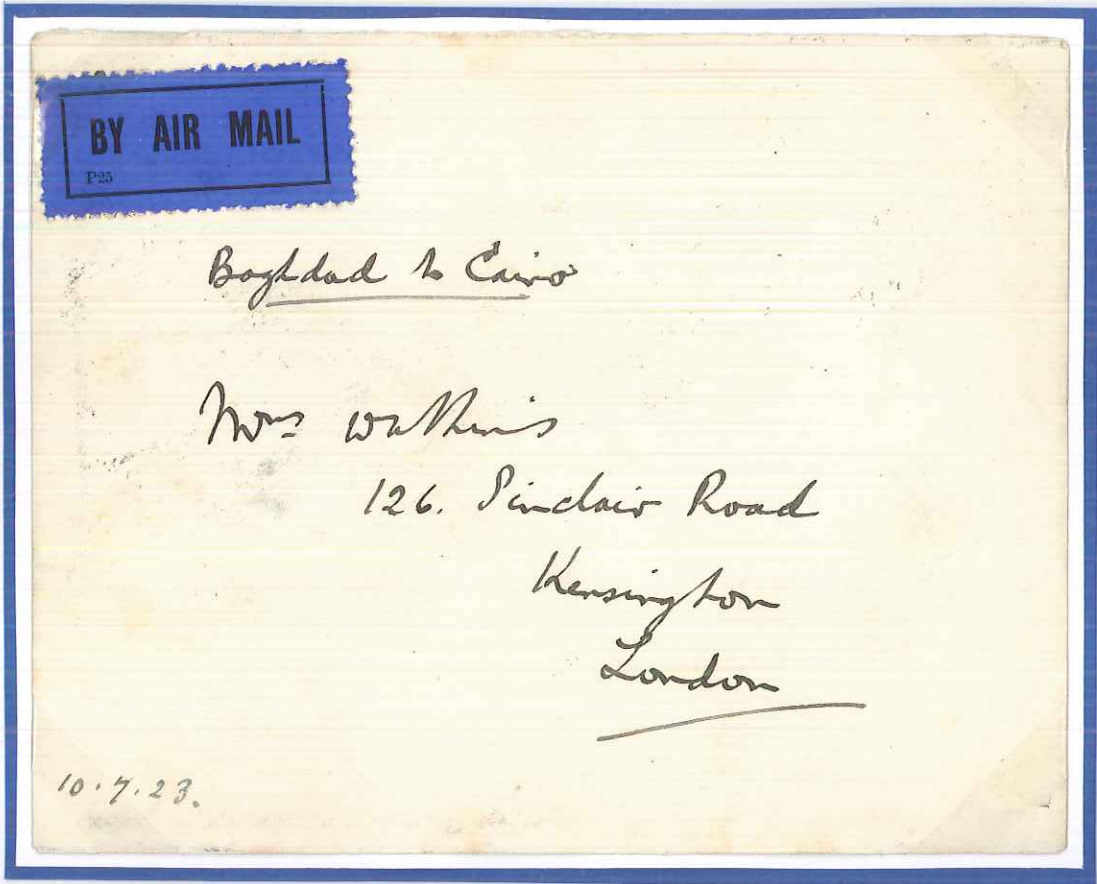 BY AIR MAIL
P25
Baghdad to Cairo
Mrs Watkins
126. Sinclair Road
Kensington
London
10.7.23.